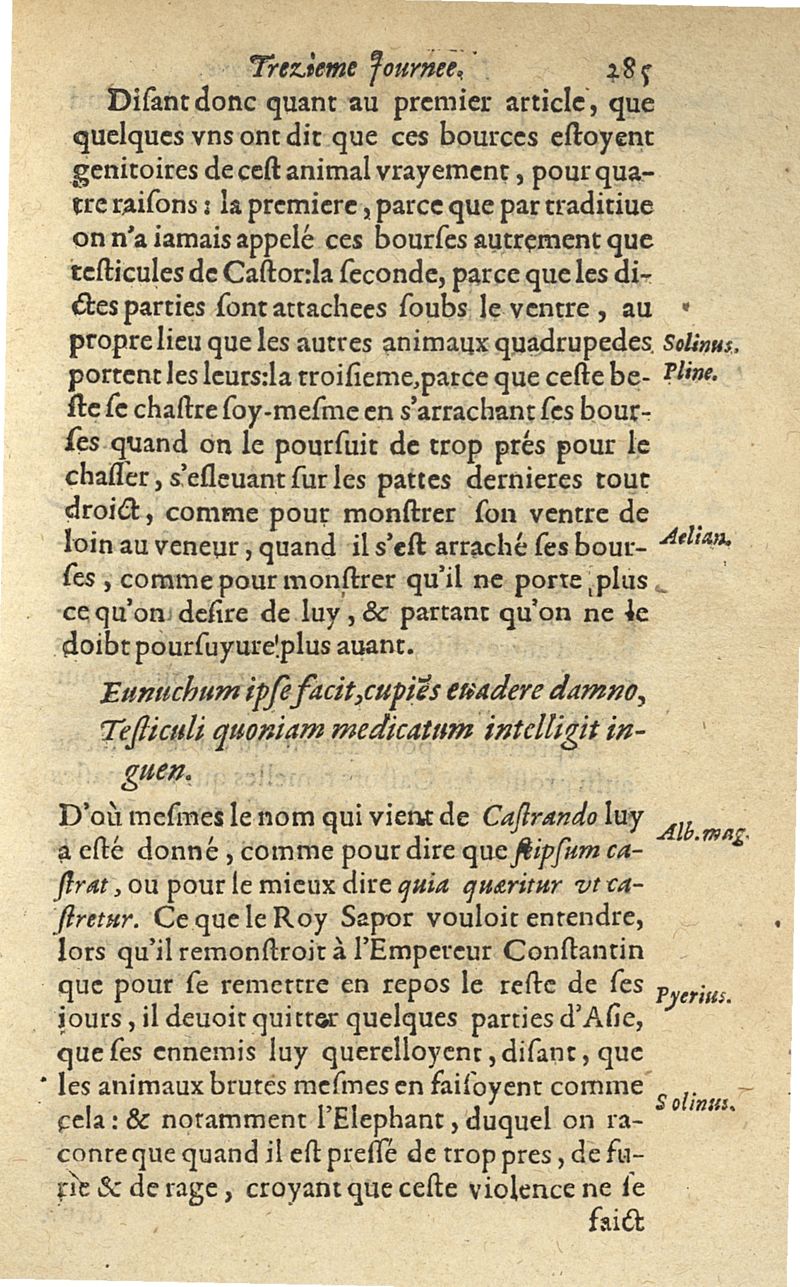 Trezieme Journee. 285
Diſant donc quant au premier article, que
quelques vns ont dit que ces bources eſtoyent
genitoires de ceſt animal vrayement, pour qua-
tre raiſons: la premiere, parce que par traditiue
on n'a iamais appelé ces bourſes autrement que
teſticules de Caſtor: la ſeconde, parce que les di-
ctes parties ſont attachees ſoubs le ventre, au
propre lieu que les autres animaux quadrupedes Solinus.
portent les leurs: la troiſieme, parce que ceſte be- Pline.
ſte ſe chaſtre ſoy-meſme en s'arrachant ſes bour-
ſes quand on le pourſuit de trop prés pour le
chaſſer, s'eſleuant ſur les pattes dernieres tout
droict, comme pour monſtrer ſon ventre de
loin au veneur, quand il s'eſt arraché ſes bour- Aelian.
ſes, comme pour monſtrer qu'il ne porte plus
ce qu'on deſire de luy, & partant qu'on ne le
doibt pourſuyure plus auant.
Eunuchum ipſe facit, cupiēs euadere damno,
Teſticuli quoniam medicatum intelligit in-
guen.
D'où meſmes le nom qui vient de Caſtrando luy
a eſté donné, comme pour dire que ſeipſum ca- Alb. mag.
ſtrat, ou pour le mieux dire quia quæritur vt ca-
ſtretur. Ce que le Roy Sapor vouloit entendre,
lors qu'il remonſtroit à l'Empereur Conſtantin
que pour ſe remettre en repos le reſte de ſes Pyerius.
jours, il deuoit quitter quelques parties d'Aſie,
que ſes ennemis luy querelloyent, diſant, que
les animaux brutes meſmes en faiſoyent comme
cela: & notamment l'Elephant, duquel on ra- Solinus.
conte que quand il eſt preſſé de trop pres, de fu-
rie & de rage, croyant que ceſte violence ne ſe
faict